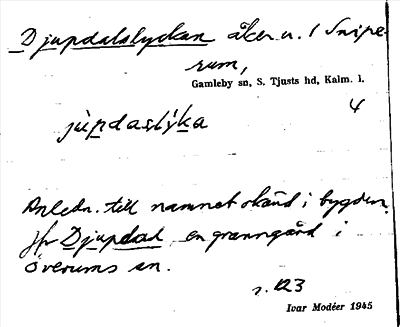 Djupdalslyckan åker u. 1 Snipe-
rum,
Gamleby sn, S. Tjusts hd, Kalm. l.
4
jùpdaslýka
Anledn. till namnet okänd i bygden.
Jfr Djupdal, en granngård i
Överums sn.
s. 123
Ivar Modéer 1945